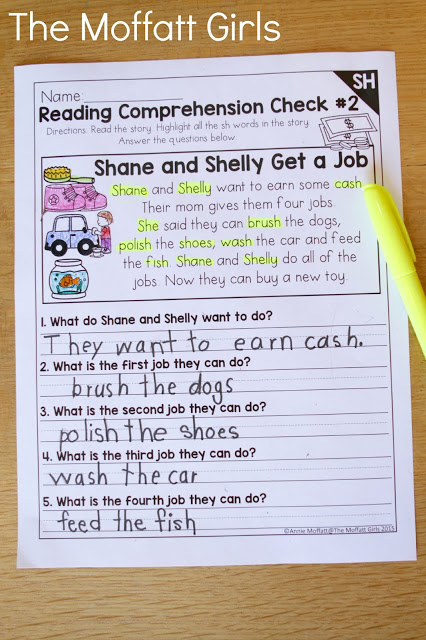 The Moffatt Girls
SH
Name:
Reading Comprehension Check #2
Directions: Read the story. Highlight all the sh words in the story.
Answer the questions below.
Shane and Shelly Get a Job
Shane and Shelly want to earn some cash.
Their mom gives them four jobs.
She said they can brush the dogs,
polish the shoes, wash the car and feed
the fish. Shane and Shelly do all of the
jobs. Now they can buy a new toy.
1. What do Shane and Shelly want to do?
They want to earn cash.
2. What is the first job they can do?
brush the dogs
3. What is the second job they can do?
polish the shoes
4. What is the third job they can do?
wash the car
5. What is the fourth job they can do?
feed the fish
©Annie Moffatt@The Moffatt Girls 2015